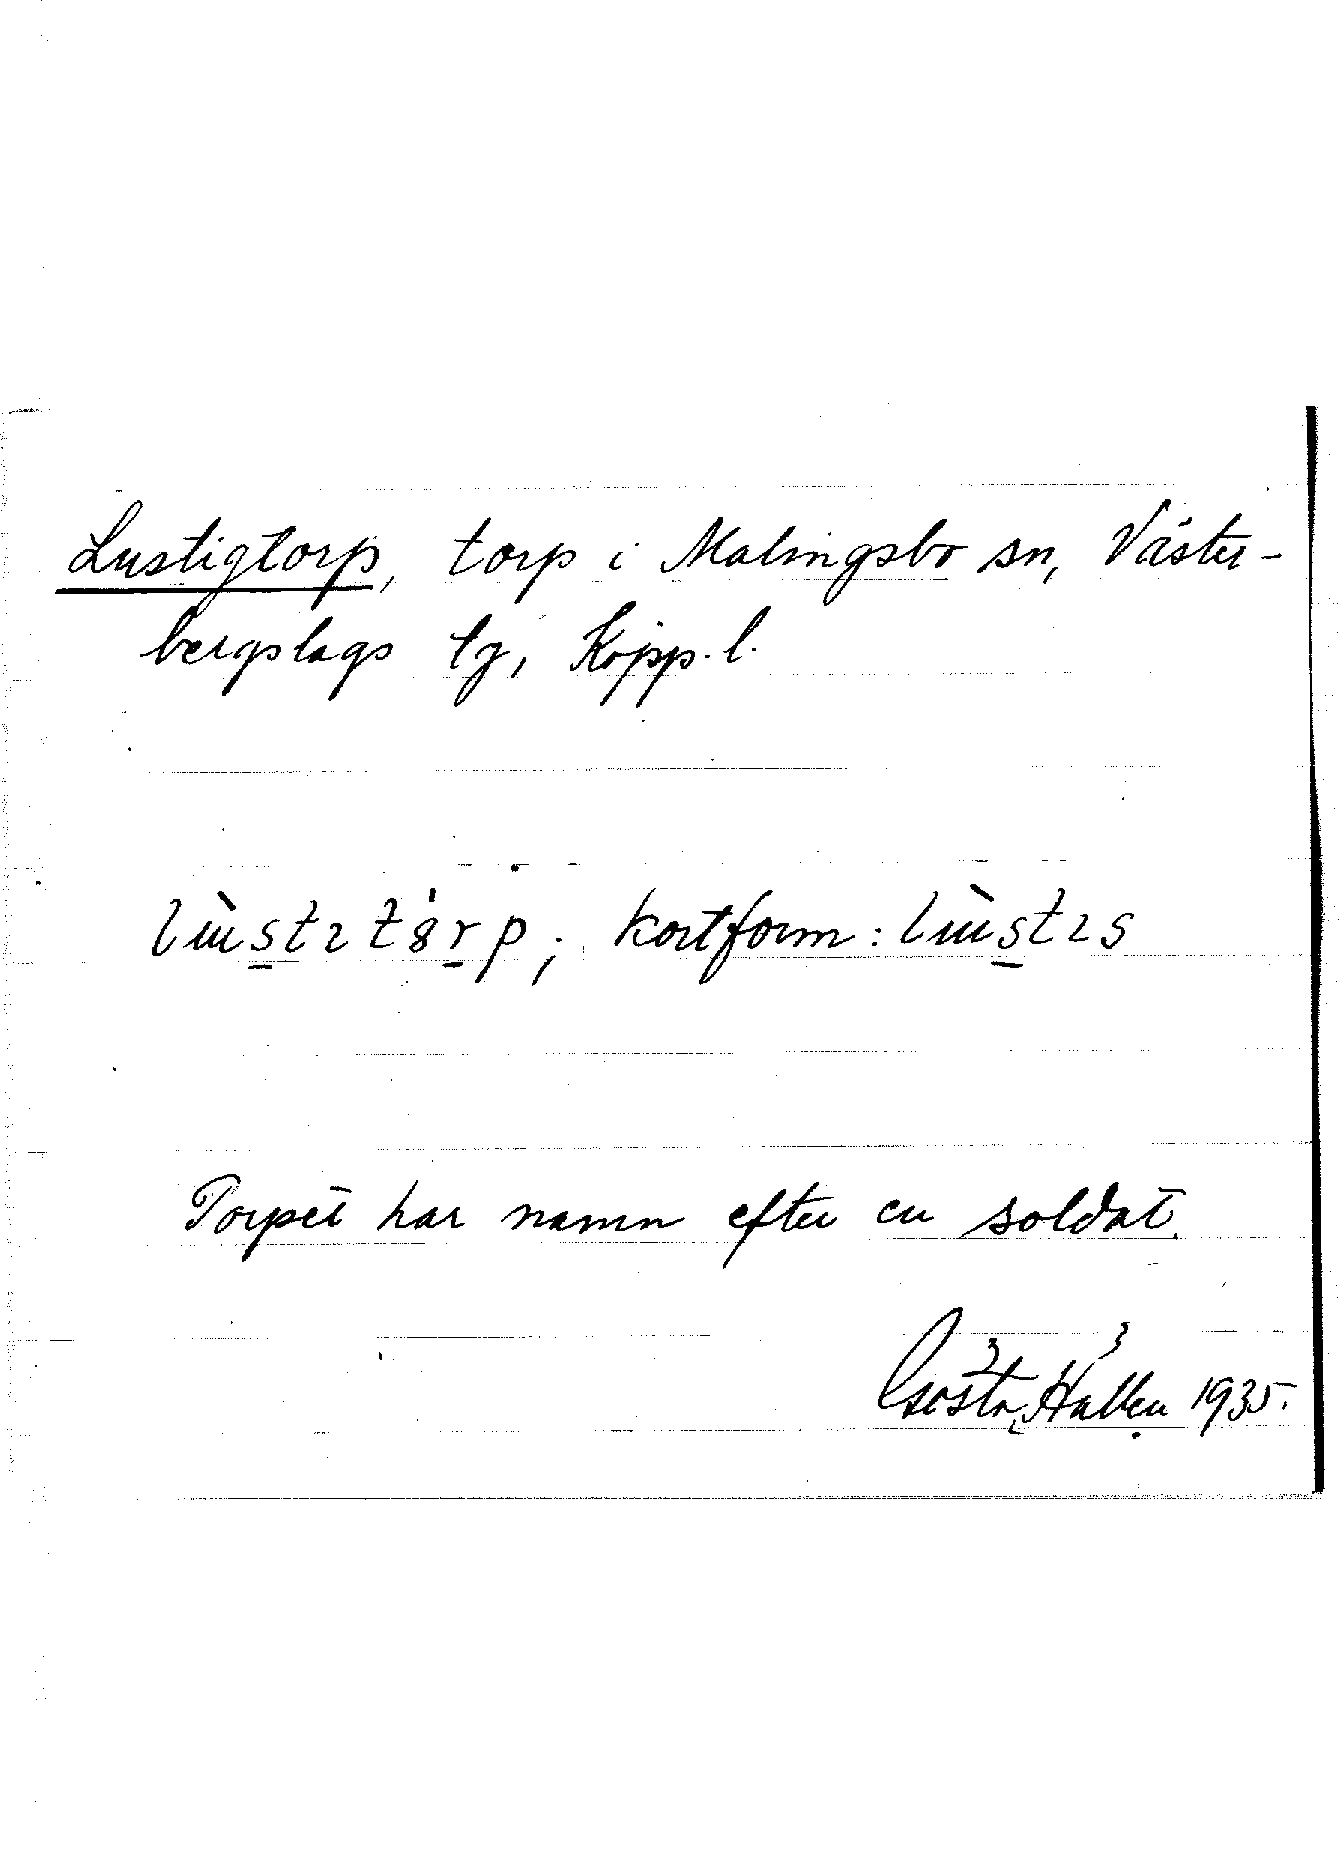 Lustigtorp, torp i Malingsbo sn, Väster-
bergslags tg, Kopp. l.
lùstɩtárp; kortform: lùstɩs
Torpet har namn efter en soldat.
Gösta Hallen 1935.